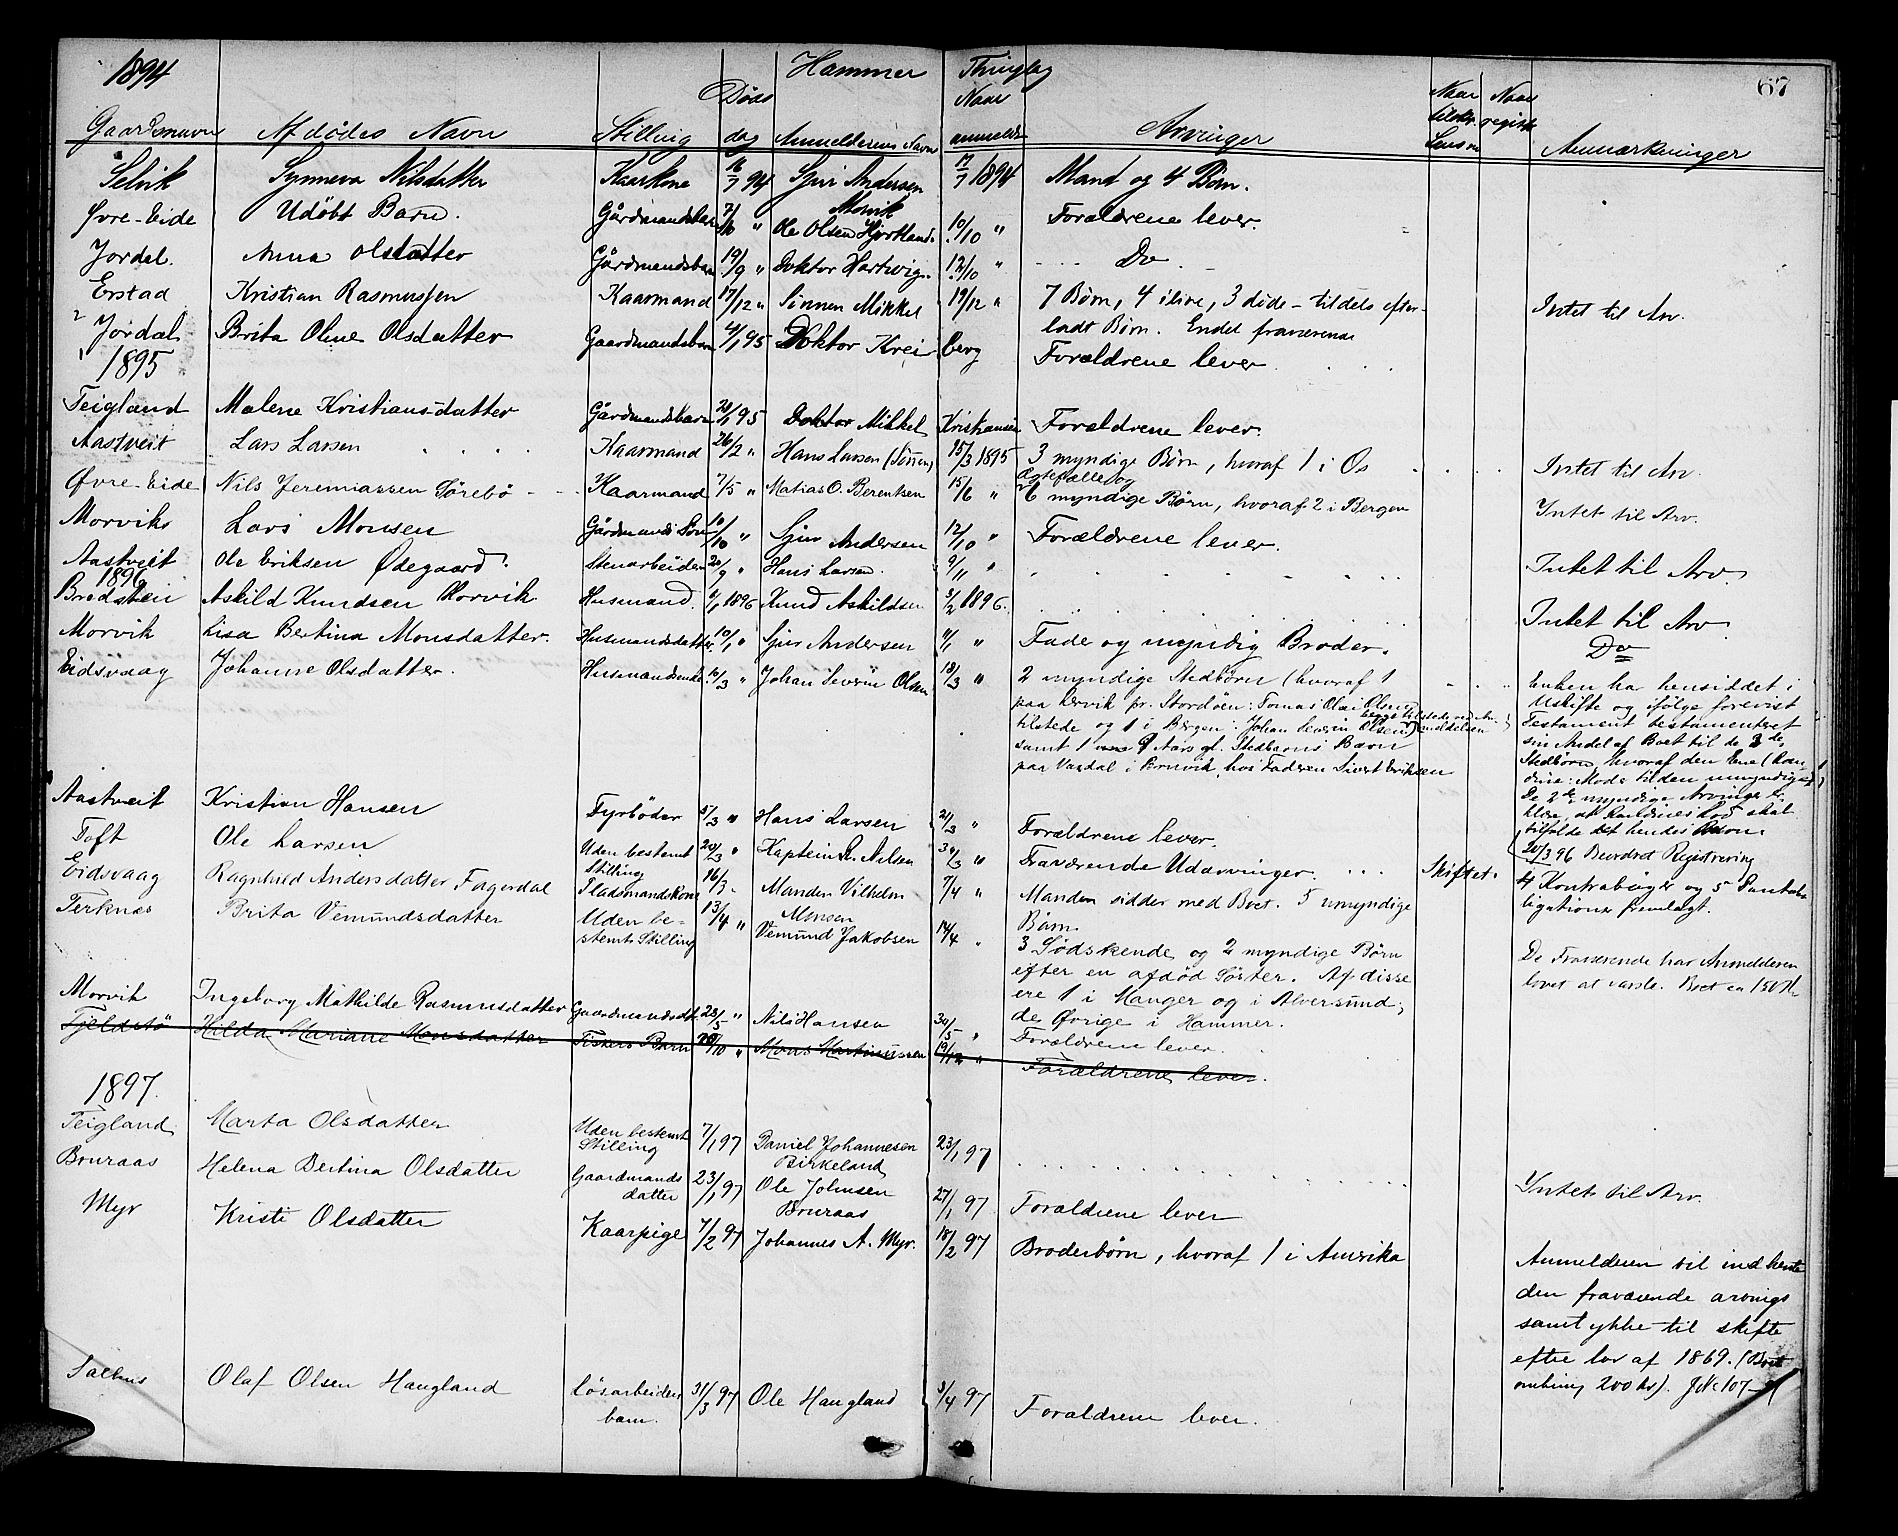 1894 Hammer Thinglag 67
Gaardsnavn Afdødes Navn Stilling Døds dag Anmelderens Navn Naar anmeldt Arvinger Naar Naar registr. Anmærkninger
Selvik Synneva Nilsdatter Kaarkone 16/7 94 Sjur Andersen Morvik 17/7 1894 Mand og 4 Børn.
Øvre-Eide Udöbt Barn. Gårdmandsbarn 7/10 " Ole Olsen Hjortland 10/10 " Forældrene lever.
Jordal. Anna Olsdatter Gårdmandsbarn 19/9 " Doktor Hartvig 12/10 " Do
Erstad Kristian Rasmussen Kaarmand 17/12 " Sönnen Mikkel 19/12 " 7 Børn, 4 ilive, 3 døde - tildels efter-
ladt Børn. Endel fraværende Intet til Arv.
Jordal Brita Oline Olsdatter Gaardmandsbarn 4/1 95 Doktor Kreiberg Forældrene lever
1895
Teigland Malene Kristiansdatter Gårdmandsbarn 20/1 95 Doktor Mikkel Kristiansen Forældrene lever.
Aastveit Lars Larsen Kaarmand 26/2 " Hans Larsen (Sönnen) 15/3 1895 3 myndige Børn, hvoraf 1 i Os Intet til Arv.
Øvre-Eide Nils Jeremiassen Sörebö Kaarmand 7/5 " Matias O. Berentsen 15/6 " Ægtefælle og
6 myndige Børn, hvoraf 2 i Bergen Intet til Arv.
Morvik Lars Monsen Gårdmands Søn 10/10 " Sjur Andersen 12/10 " Forældrene lever.
Aastveit Ole Eriksen Ødegaard. Stenarbeider 20/9 " Hans Larsen. 9/11 " Intet til Arv
1896
Bredstein Askild Knudsen Morvik Husmand. 1/1 1896 Knud Askildsen 3/2 1896. Intet til Arv
Morvik Lisa Bertina Monsdatter. Husmandsdatter 10/1 " Sjur Andersen 11/1 " Fader og myndig Broder. Do
Eidsvaag Johanne Olsdatter. Husmandsenke 10/3 " Johan Severin Olsen 18/3 " 2 myndige Stedbörn (hvoraf 1
paa Lervik pr. Stordöen: Tomas Olai Olsen
tilstede og 1 i Bergen: Johan Severin Olsen) begge tilstede ved Anmeldelsen
samt 1 9 Aars gl. Stedbarns Barn
paa Vasdal i Bruvik, hos Faderen Sivert Eriksen
Enken har hensiddet i
Uskifte og ifölge forevist
Testament testamenteret
sin Andel af Boet til de 2de
Stedbörn, hvoraf den Ene (Ran-
dine: Moder til den umyndige)
De 2de myndige Arvinger er-
klære, at Randines Lod skal
tilfalde hendes Barn
20/3 96 Beordret Registrering
4 Kontrabøger og 5 Pantob-
ligationer fremlagt.
Aastveit Kristian Hansen Fyrböder 5/3 " Hans Larsen 21/3 " Forældrene lever.
Toft Ole Larsen Uden bestemt Stilling 20/3 " Kaptein R. Nilsen 30/3 " Fraværende Udarvinger.
Eidsvaag Ragnhild Andersdatter Fagerdal Pladsmandskone 16/3 " Manden Vilhelm Monsen 7/4 " Manden sidder med Boet. 5 umyndige
Børn. Skiftet.
Terknæs Brita Vemundsdatter Uden be-
stemt Stilling 13/4 " Vemund Jakobsen 14/4 " 3 Södskende og 2 myndige Børn
efter en afdød Söster. Af disse
ere 1 i Manger og i Alversund;
de Øvrige i Hammer.
De Fraværende har Anmelderen
lovet at varsle. Boet ca 150 Kr.
Morvik Ingeborg Mathilde Rasmusdatter Gaardmandsdt. 28/5 " Nils Hansen 30/5 " Forældrene lever.
Fjeldstö Hilda Mariane Monsdatter Fiskers Barn 20/10 " Mons Martinussen 19/12 " Forældrene lever.
1897.
Teigland Marta Olsdatter Uden bestemt Stilling 7/1 97 Daniel Johannesen Birkeland 23/1 97
Bruraas Helena Bertina Olsdatter Gaardmands datter 23/1 97 Ole Johnsen Bruraas 27/1 97 Forældrene lever Intet til Arv.
Myr Kristi Olsdatter Kaarpige 7/2 97 Johannes A. Myr. 18/2 97 Broderbörn, hvoraf 1 i Amerika
Anmelderen vil indhente
den fraværende arvings
samtykke til skifte
efter lov af 1869. (Boet
omkring 200 kr). J.No 107-97
Salhus Olaf Olsen Haugland Lösarbeider barn. 31/3 97 Ole Haugland 3/4 97 Forældrene lever.